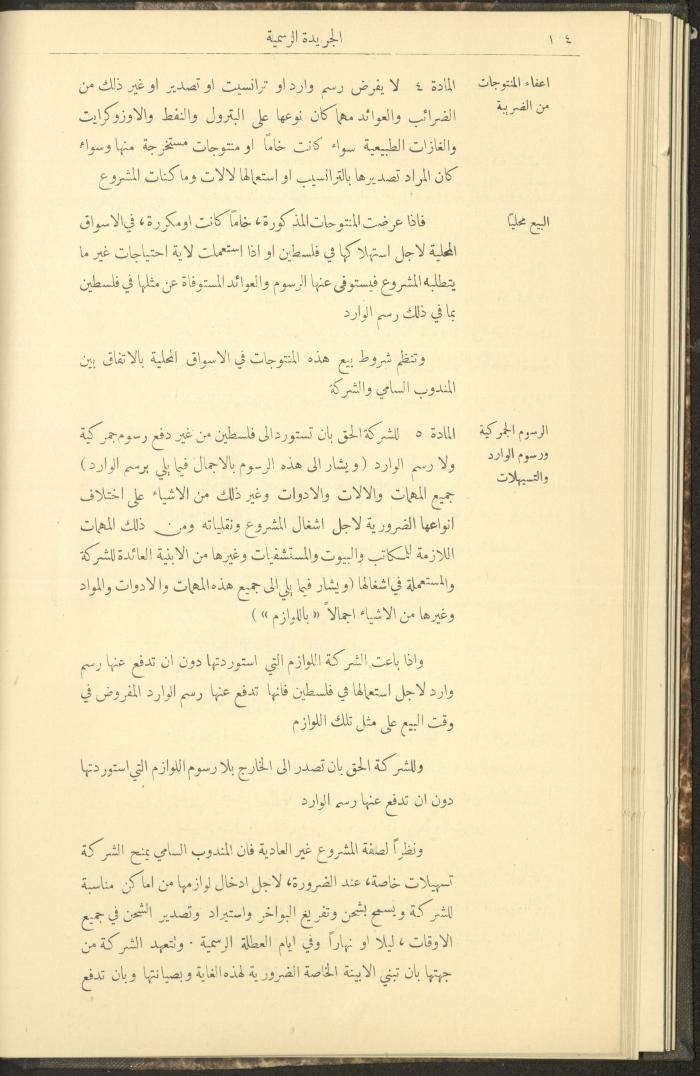 ١٤
الجريدة الرسمية
اعفاء المنتوجات
من الضريبة
المادة ٤ لا يفرض رسم وارد او ترانسيت او تصدير او غير ذلك من
الضرائب والعوائد مهما كان نوعها على البترول والنفط والاوزوكرايت
والغازات الطبيعية سواء كانت خاماً او منتوجات مستخرجة منها وسواء
كان المراد تصديرها بالترانسيب او استعمالها لالات وماكنات المشروع
البيع محلياً
فاذا عرضت المنتوجات المذكورة، خاماً كانت او مكررة، في الاسواق
المحلية لاجل استهلاكها في فلسطين او اذا استعملت لاية احتياجات غير ما
يتطلبه المشروع فيستوفى عنها الرسوم والعوائد المستوفاة عن مثلها في فلسطين
بما في ذلك رسم الوارد
وتنظم شروط بيع هذه المنتوجات في الاسواق المحلية بالاتفاق بين
المندوب السامي والشركة
الرسوم الجمركية
ورسوم الوارد
والتسهيلات
المادة ٥ للشركة الحق بان تستورد الى فلسطين من غير دفع رسوم جمركية
ولا رسم الوارد (ويشار الى هذه الرسوم بالاجمال فيما يلي برسم الوارد)
جميع المهمات والالات والادوات وغير ذلك من الاشياء على اختلاف
انواعها الضرورية لاجل اشغال المشروع ونقلياته ومن ذلك المهمات
اللازمة للمكاتب والبيوت والمستشفيات وغيرها من الابنية العائدة للشركة
والمستعملة في اشغالها (ويشار فيما يلي الى جميع هذه المهمات والادوات والمواد
وغيرها من الاشياء اجمالاً « باللوازم »)
واذا باعت الشركة اللوازم التي استوردتها دون ان تدفع عنها رسم
وارد لاجل استعمالها في فلسطين فانها تدفع عنها رسم الوارد المفروض في
وقت البيع على مثل تلك اللوازم
وللشركة الحق بان تصدر الى الخارج بلا رسوم اللوازم التي استوردتها
دون ان تدفع عنها رسم الوارد
ونظراً لصفة المشروع غير العادية فان المندوب السامي يمنح الشركة
تسهيلات خاصة، عند الضرورة، لاجل ادخال لوازمها من اماكن مناسبة
للشركة ويسمح بشحن وتفريغ البواخر واستيراد وتصدير الشحن في جميع
الاوقات، ليلا او نهاراً وفي ايام العطلة الرسمية . وتتعهد الشركة من
جهتها بان تبني الابينة الخاصة الضرورية لهذه الغاية وبصيانتها وبان تدفع